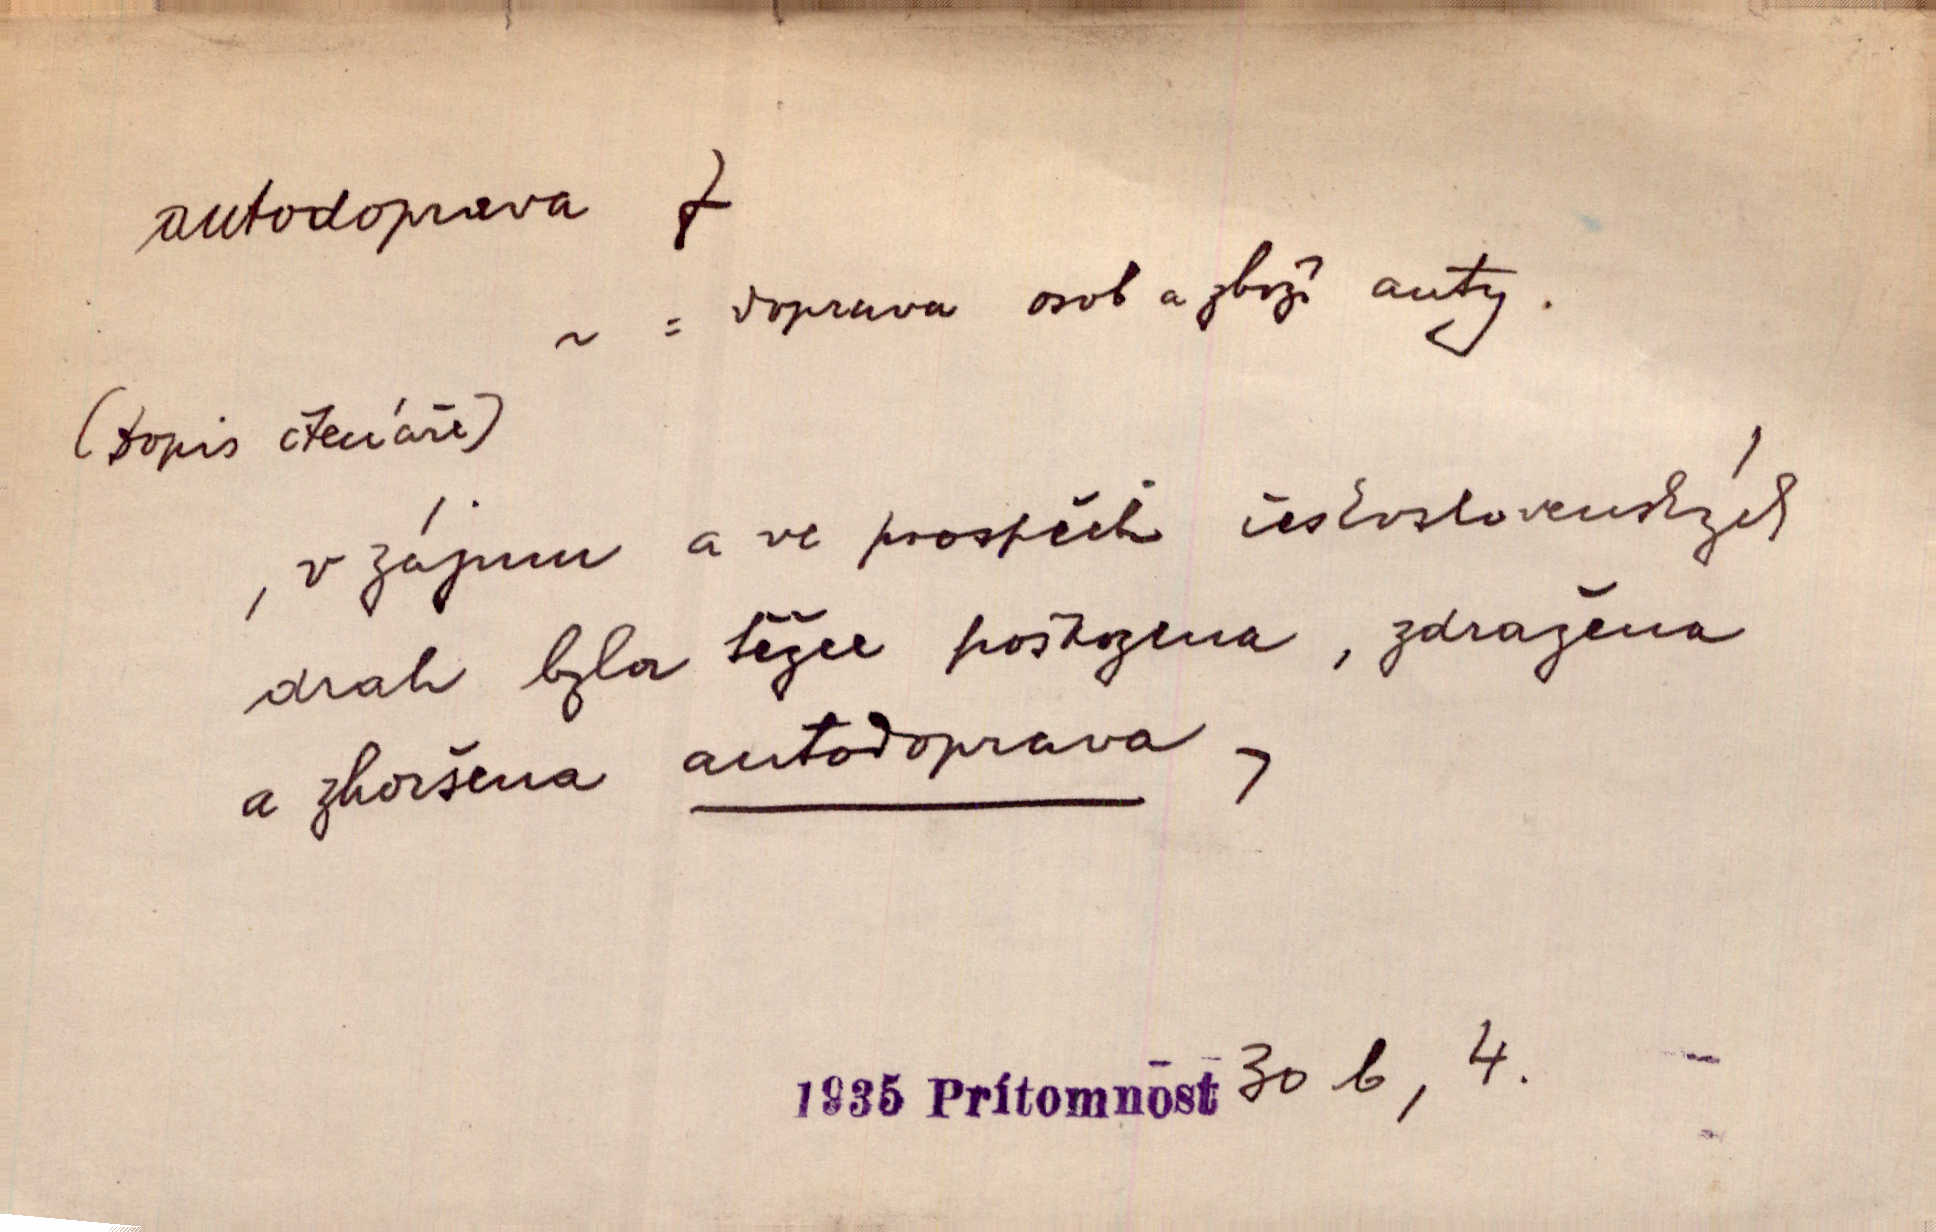 autodoprava f
~ = doprava osob a zboží auty.
(dopis čtenáře)
, v zájmu a ve prospěch československých
drah byla těžce poškozena, zdražena
a zhoršena autodoprava,
1935 Prítomnost 30 b, 4.